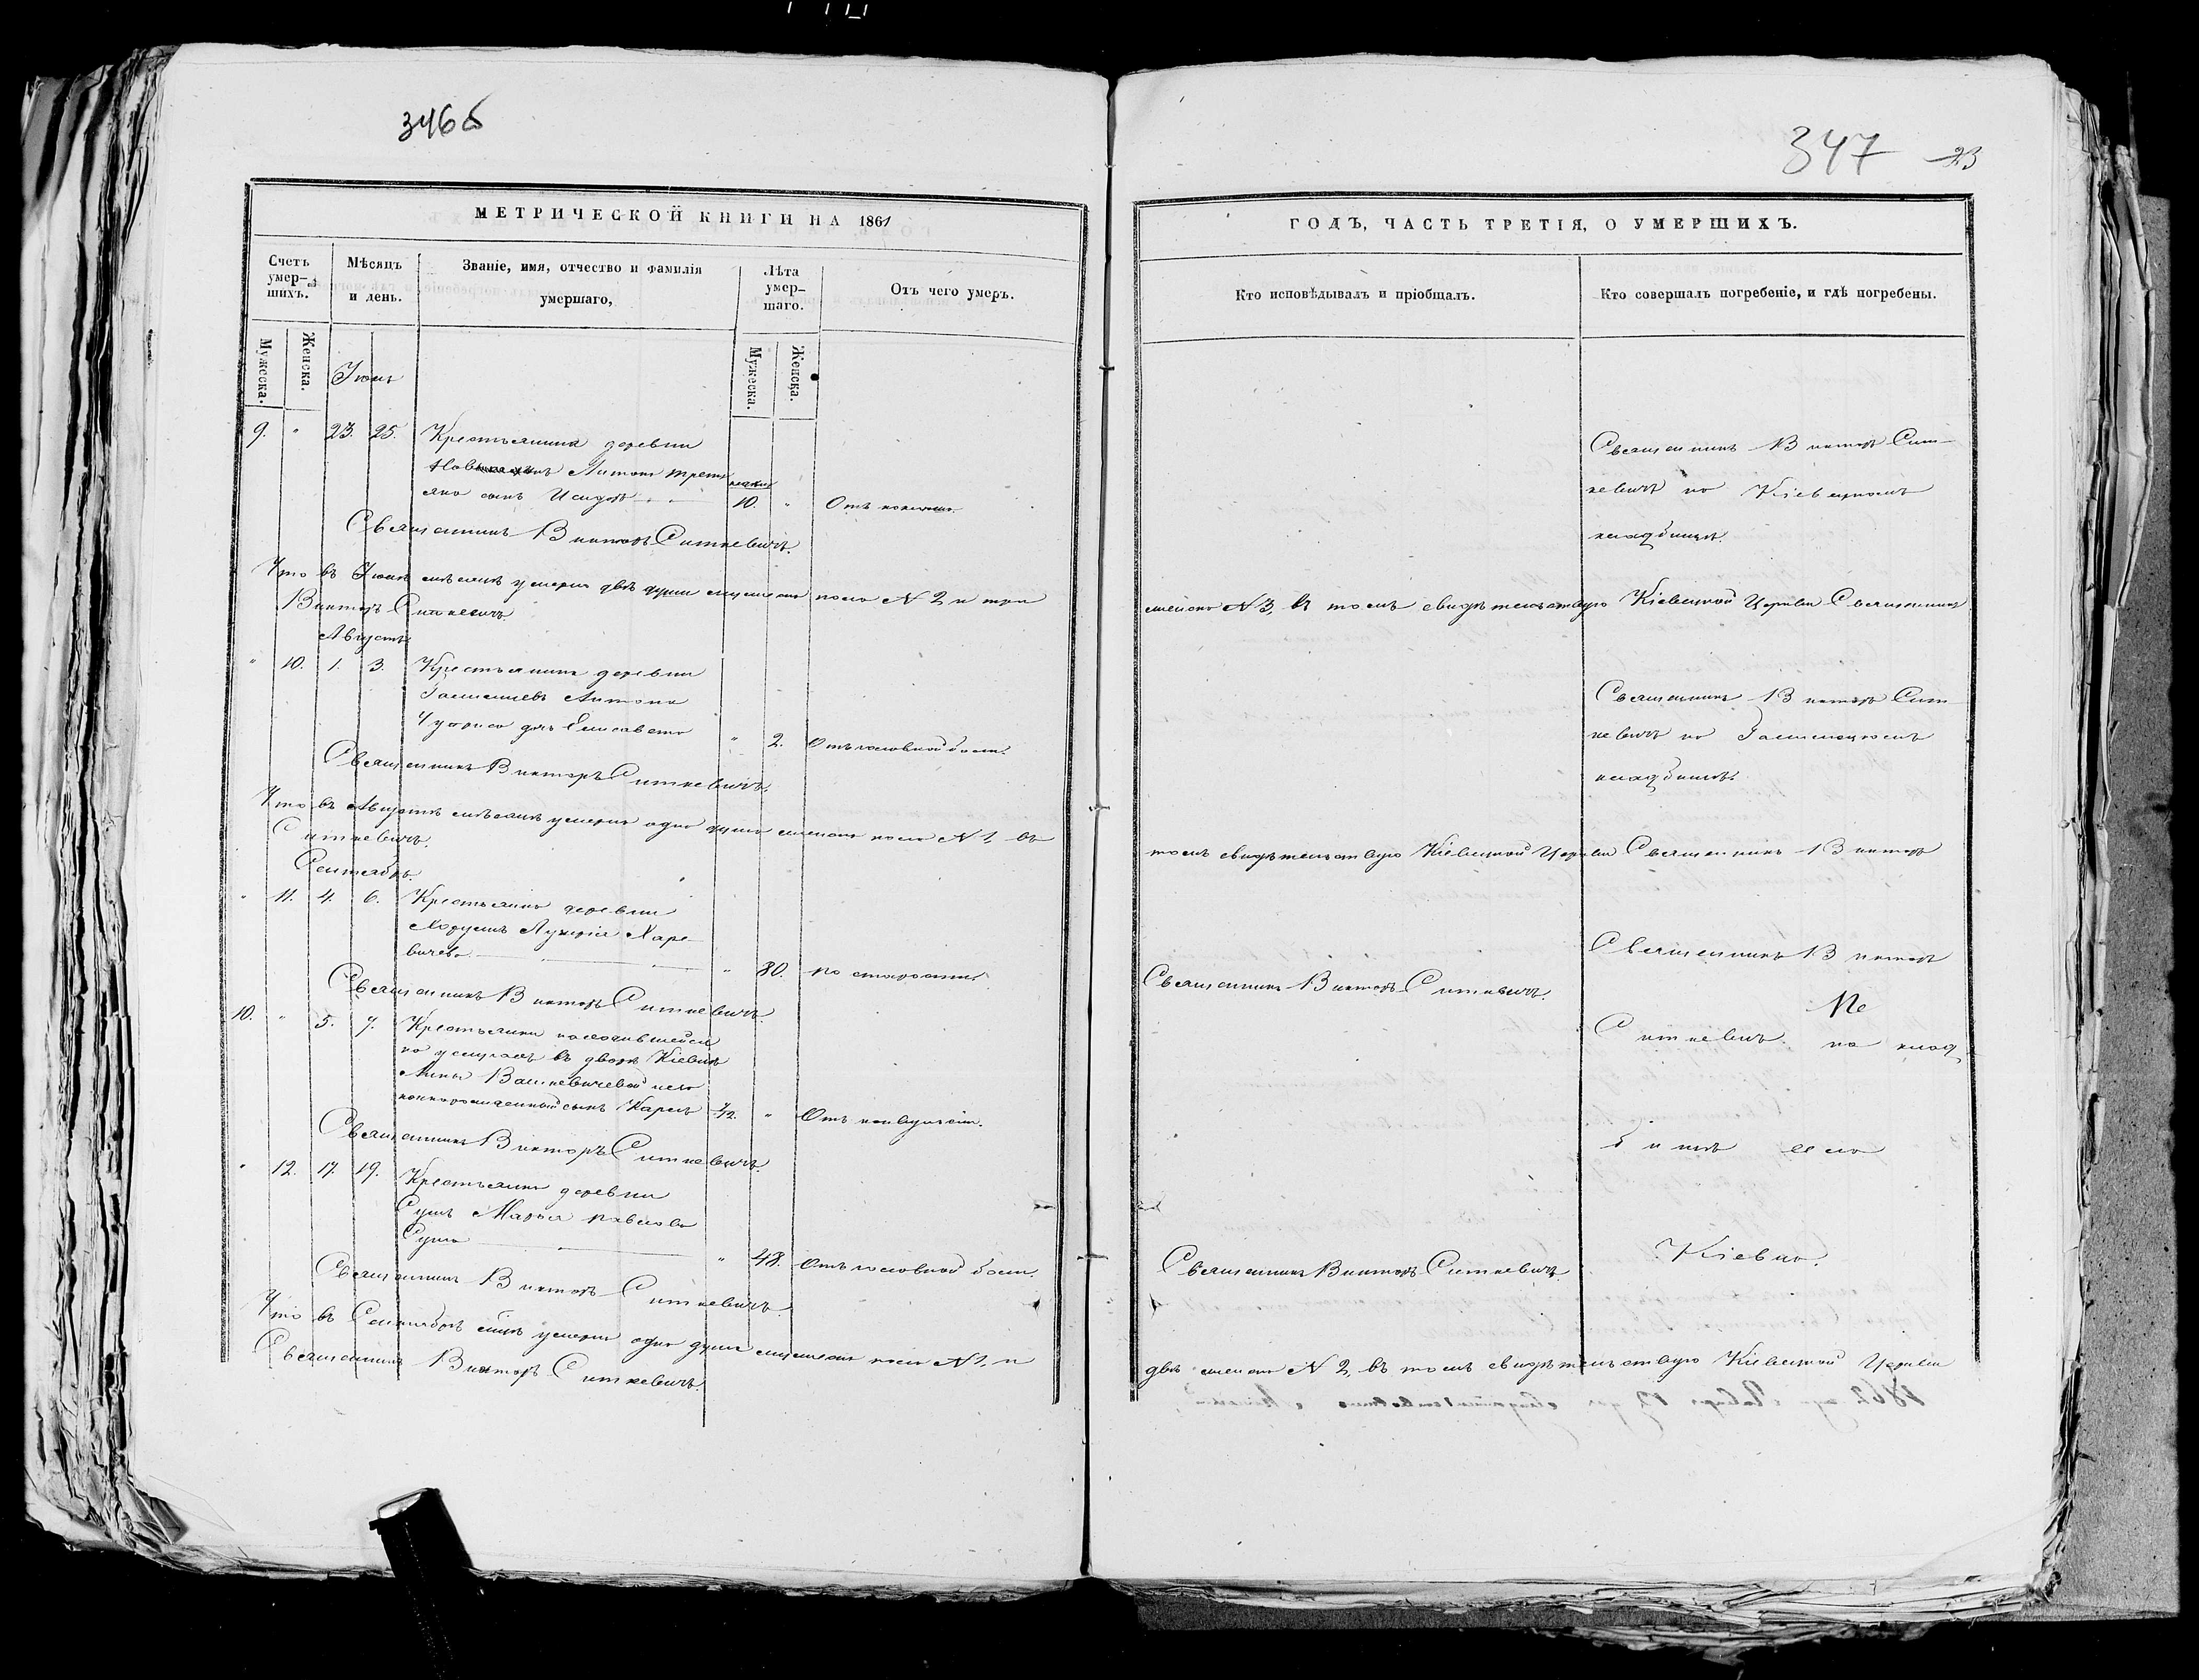 346б
МЕТРИЧЕСКОЙ КНИГИ НА 1861
Счетъ умер-шихъ.
Мѣсяцъ и день.
Званіе, имя, отчество и фамилія умершаго,
Лѣта умер-шаго.
Отъ чего умеръ.
Мужеска.
Женска.
Мужеска.
Женска.
9. " 23. 25. Крестьянина деревни
Антона Трет
яка сынъ Исидоръ 10. "
Священникъ Викторъ Ситкевичъ.
Что въ мѣсяцѣ умерло двѣ души мужеска пола № 2 и три
Викторъ Ситкевичъ.
Августъ
" 10. 1. 3. Крестьянина деревни
Антона
дочь Елисавета " 2. Отъ головной боли.
Священникъ Викторъ Ситкевичъ.
Что въ Августѣ мѣсяцѣ умерла одна душа женска пола № 1, въ
Ситкевичъ.
Сентябрь.
" 11. 4. 6. Крестьянка деревни
Харе-
вичева " 80. по старости.
Священникъ Викторъ Ситкевичъ.
10. " 5. 7. Крестьянки находившейся
въ дворѣ Кіевцѣ
Анны Вашкевичевой
сынъ Карлъ "
Священникъ Викторъ Ситкевичъ.
" 12. 17. 19. Крестьянка деревни
Сушъ Марья Павлова
Суша " 48. Отъ головной боли.
Священникъ Викторъ Ситкевичъ.
Что въ Сентябрѣ умерла одна душа мужеска пола № 1, и
Священникъ Викторъ Ситкевичъ.
347 23
ГОДЪ, ЧАСТЬ ТРЕТІЯ, О УМЕРШИХЪ.
Кто исповѣдывалъ и пріобщалъ.
Кто совершалъ погребеніе, и гдѣ погребены.
Священникъ Викторъ Сит-
кевичъ на Кіевецкомъ
кладбищѣ.
женска № 3, въ томъ свидѣтельствую Кіевецкой Церкви Священникъ
Священникъ Викторъ Сит
кевичъ на
кладбищѣ.
томъ свидѣтельствую Кіевецкой Церкви Священникъ Викторъ
Священникъ Викторъ
Священникъ Викторъ Ситкевичъ.
Ситкевичъ на клад
бищѣ села
Священникъ Викторъ Ситкевичъ
Кіевца.
двѣ женска № 2, въ томъ свидѣтельствую Кіевецкой Церкви